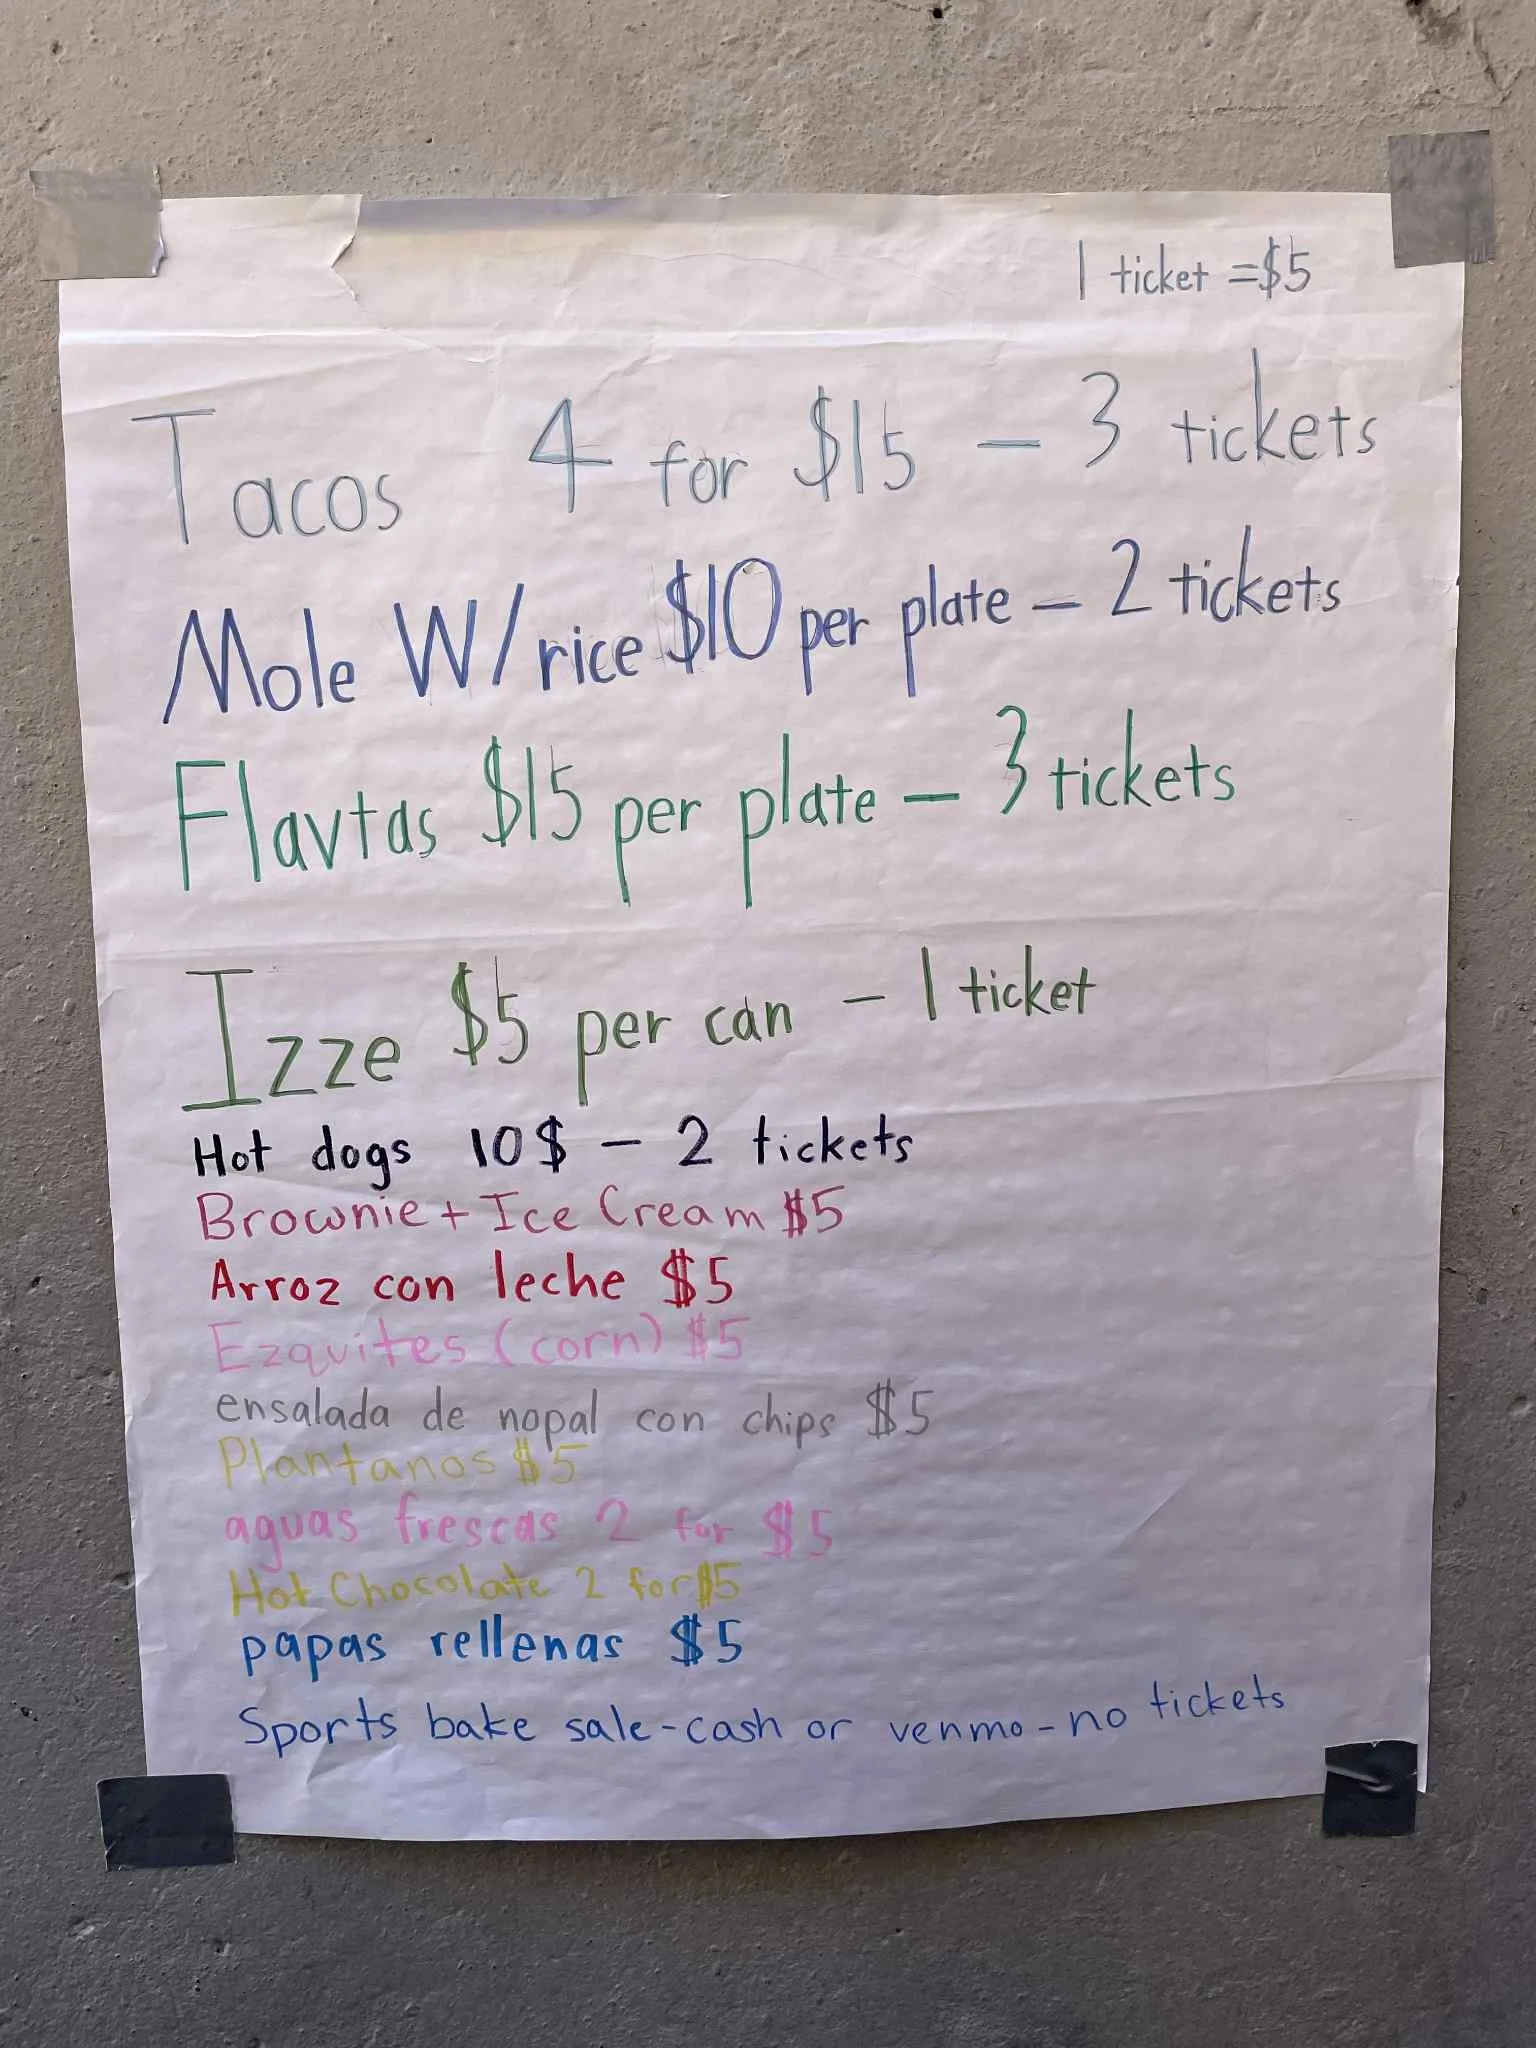 1 ticket =$5
Tacos 4 for $15 - 3 tickets
Mole W/rice $10 per plate - 2 tickets
Flavtas $15 per plate - 3 tickets
Izze $5 per can - 1 ticket
Hot dogs 10$ - 2 tickets
Brownie + Ice Cream $5
Arroz con leche $5
Ezquites (corn) $5
ensalada de nopal con chips $5
Plantanos $5
aguas frescas 2 for $5
Hot Chocolate 2 for $5
papas rellenas $5
Sports bake sale-cash or venmo-no tickets